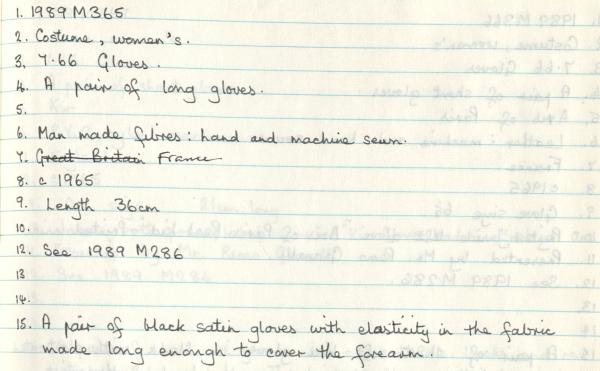 1. 1989 M365
2. Costume, women's.
3. 7.66 Gloves.
4. A pair of long gloves.
5.
6. Man made fibres: hand and machine sewn.
7. Great Britain France
8. c 1965
9. Length 36cm
10.
12. See 1989 M286
13
14.
15. A pair of black satin gloves with elasticity in the fabric
made long enough to cover the forearm.